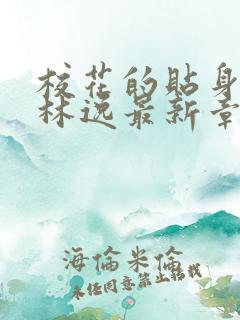 校花的贴身
林逸最新章
海倫米倫
未经同意禁止转载